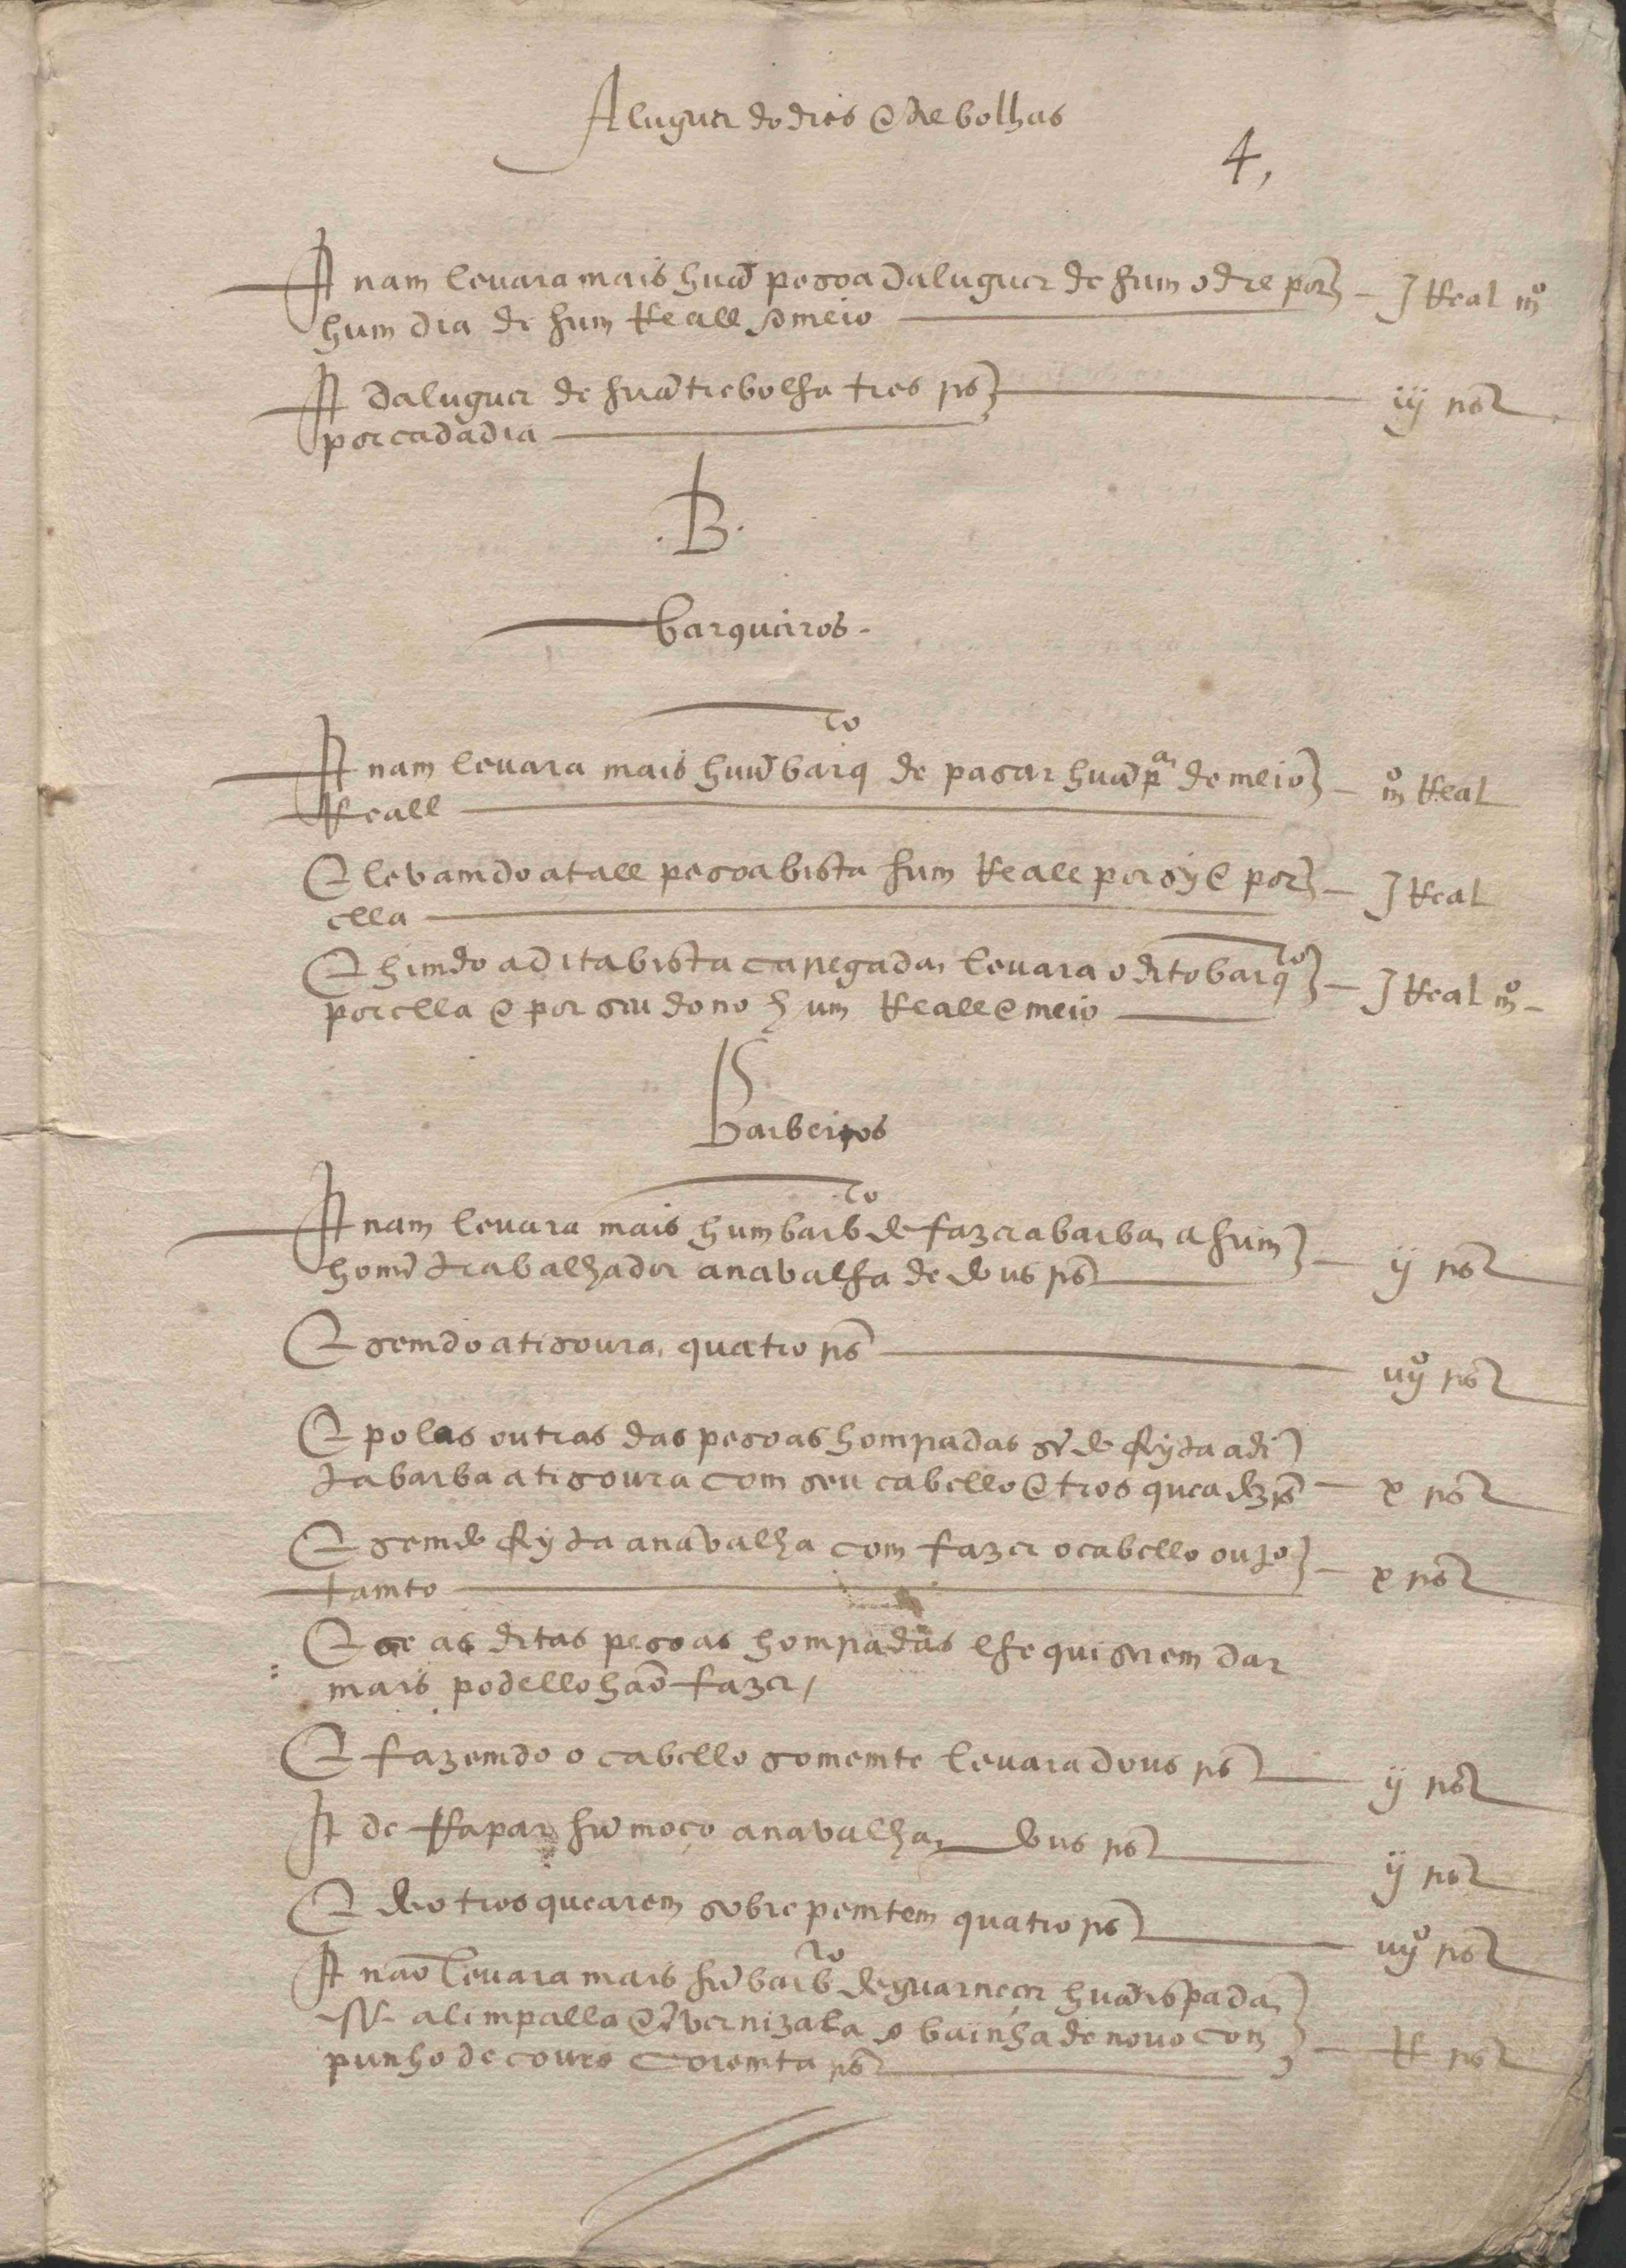 Aluguer dodres & trebolhas
4,
It nam levara mais hũa pesoa daluguer de hum odre por – J Real mº
hum dia de hum Reall & meio
It daluguer de hũa trebolha tres rs – iij rs
por cada dia
.B.
barqueiros -
It nam levara mais huũ barqro de pasar hũa pa de meio – mº Real
Reall
E levamdo a tall pesoa bista hum Reall por sy & por – J Real
ella
E himdo a dita bista caregada levara o dito barqro
por ella & por seu dono hum Reall & meio – J Real mº -
Barbeiros
It nam levara mais hum barbro de fazer a barba a hum
homẽ trabalhador a navalha de dous rs – ij rs
E semdo a tisoura, quatro rs – iiijº rs
E polas outras das pesoas homrradas sẽdo fryta a di
ta barba a tisoura com seu cabello & trosquea dez rs – x rs
E semdo fryta a navalha com fazer o cabello outro – x rs
tamto
E se as ditas pesoas homrradas lhe quiserem dar
mais podello hão fazer /
E fazemdo o cabello somemte levara dous rs – ij rs
It de Rapar hũ moço a navalha dous rs – ij rs
E de o trosquearem sobre pemtem quatro rs – iiijº rs
It não levara mais hũ barbro de guarneçer hũa espada
.s. alimpalla & ẽvernizala & bainha de novo com
punho de couro coremta rs – R rs